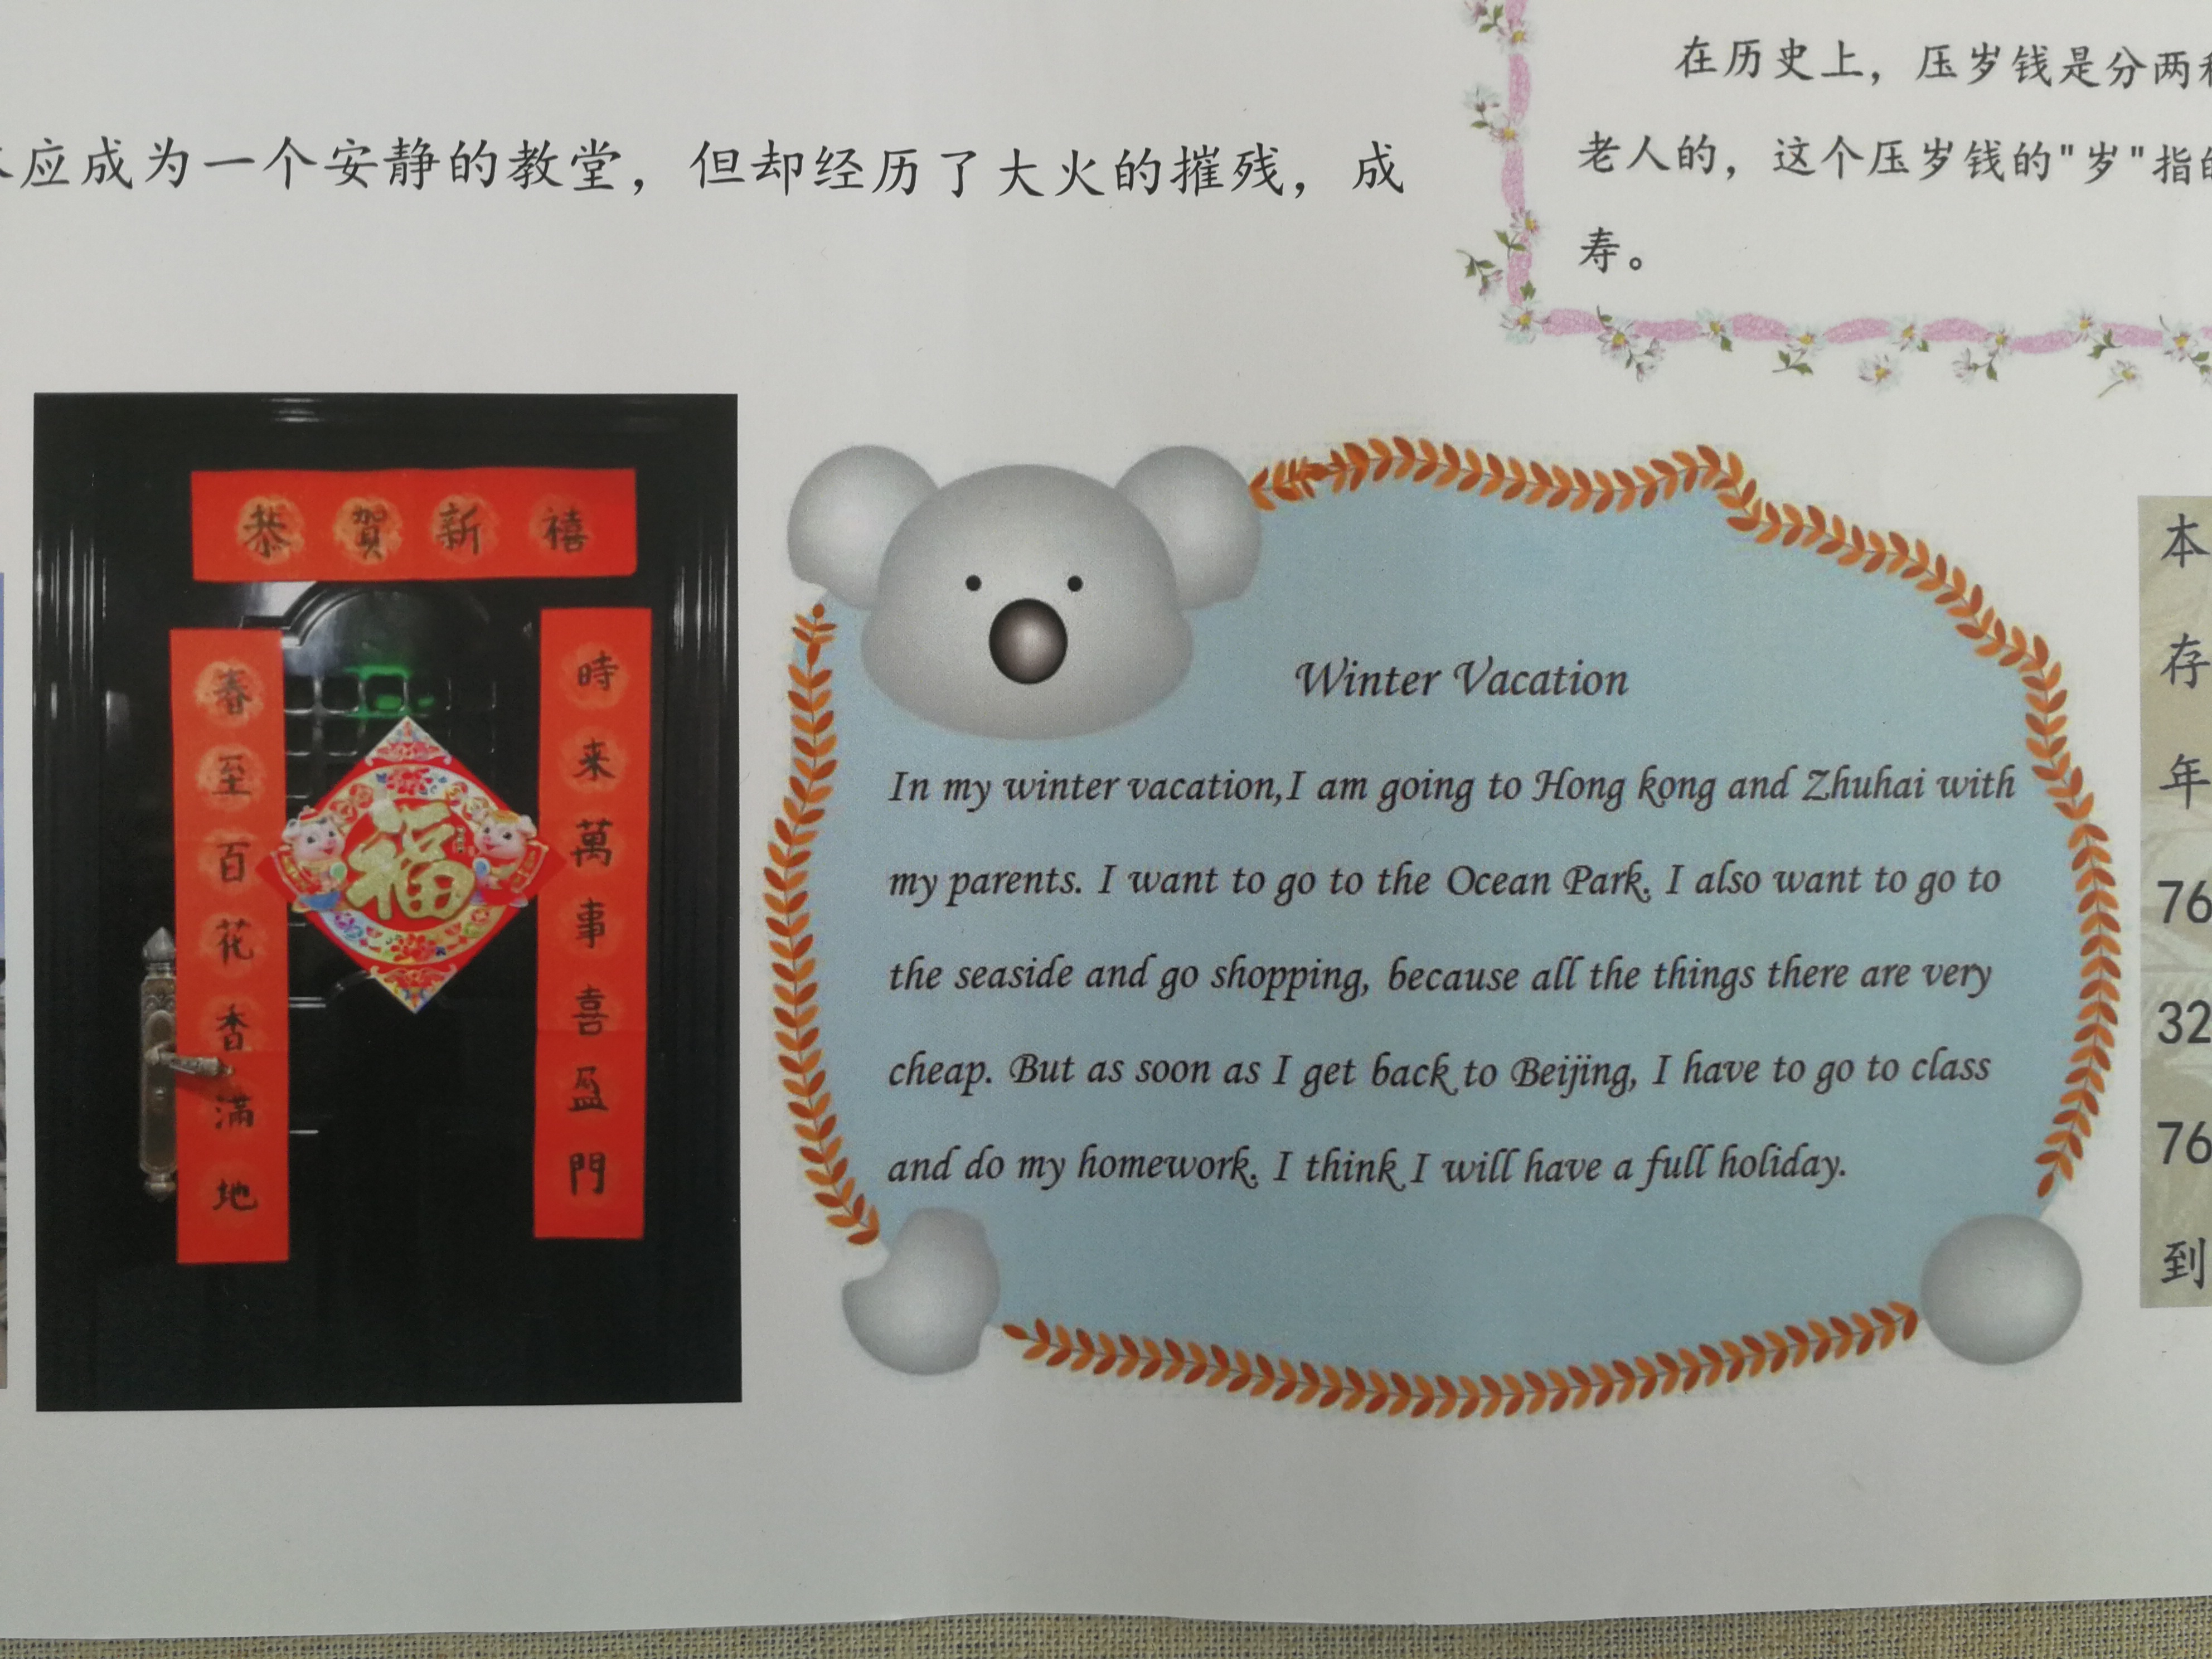 在历史上，压岁钱是分两
老人的，这个压岁钱的"岁"指的
寿。
应成为一个安静的教堂，但却经历了大火的摧残，成
恭贺新禧
時来萬事喜盈門
春至百花香满地
福
Winter Vacation
In my winter vacation,I am going to Hong kong and Zhuhai with
my parents. I want to go to the Ocean Park. I also want to go to
the seaside and go shopping, because all the things there are very
cheap. But as soon as I get back to Beijing, I have to go to class
and do my homework. I think I will have a full holiday.
本
存
年
76
32
76
到